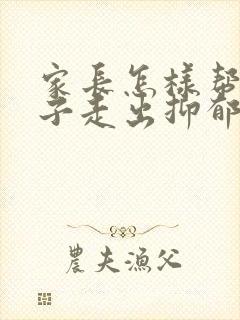 家長怎樣幫
子走出抑郁
農夫漁父